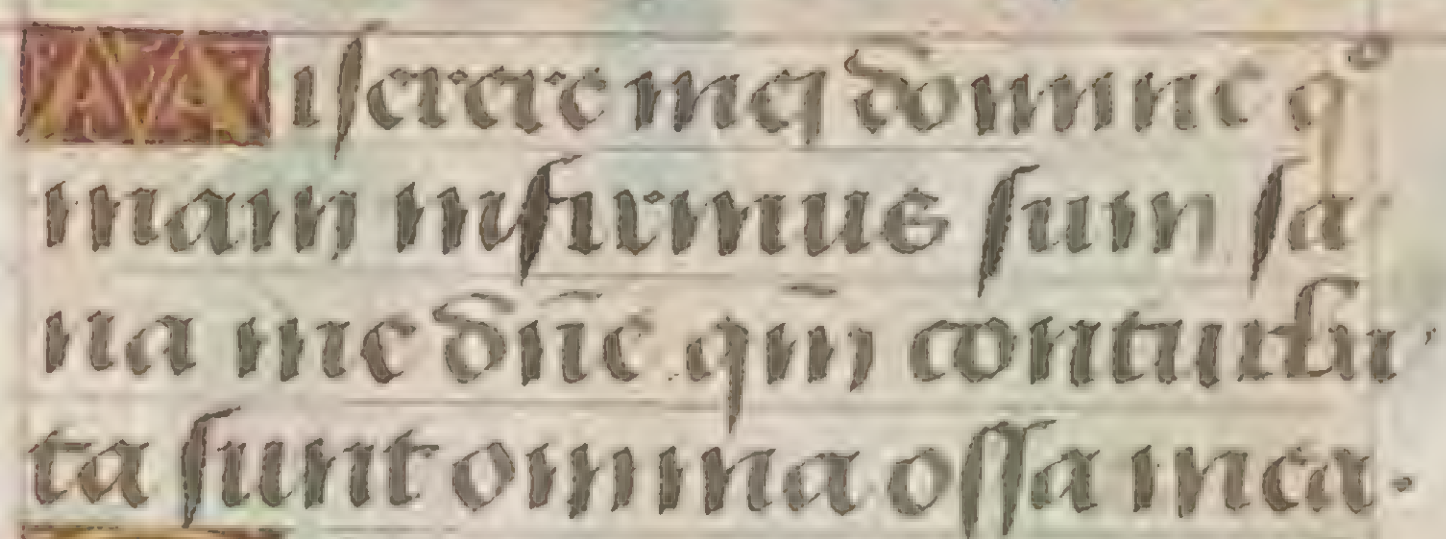 Miserere mei domine qo
niam infirmus sum sa
na me dn̄e qm̄ conturba
ta sunt omnia ossa mea.